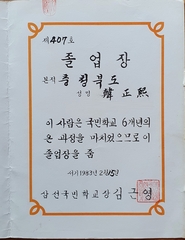 제407호
졸업장
본적 충청북도
성명 韓正熙
이 사람은 국민학교 6개년의
온 과정을 마치었으므로 이
졸업장을 줌
서기 1983년 2월 15일
삼선국민학교장 김근영